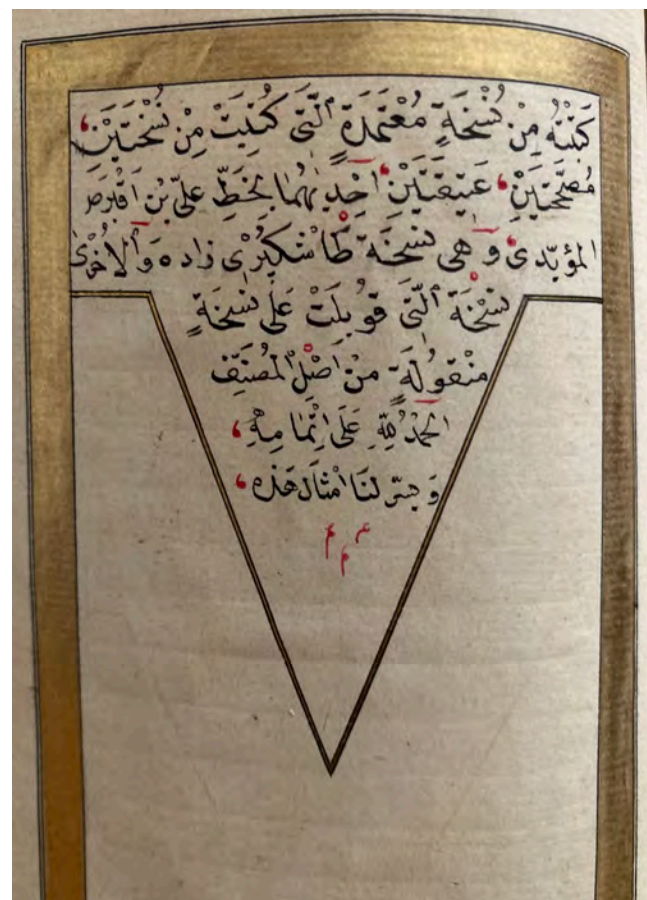 كَتَبْتُهُ مِنْ نُسْخَةٍ مُعْتَمَدَةٍ ٱلَّتِى كُتِبَتْ مِنْ نُسْخَتَيْنِ
مُصَحَّحَتَيْنِ عَتِيقَتَيْنِ اِحْدَيٰهُمَا بِخَطِّ عَلِىِّ بْنِ
المؤيّدى وَهِى نُسْخَةُ طَاشْكُپْرِى زاده وَٱلْاُخْرٰى
نُسْخَةٌ ٱلَّتِى قُوبِلَتْ عَلَى نُسْخَةٍ
مَنْقُولَةٍ مِنْ اَصْلِ ٱلْمُصَنِّفِ
الْحَمْدُ لِلّٰهِ عَلَى اِتْمَامِهِ
وَيسّر لَنَا اَمْثَالَ هَذِهِ
م م م